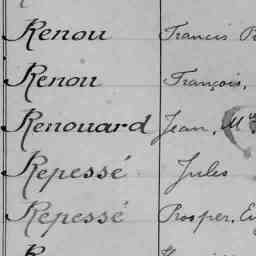 Renou Francis
Renou François,
Renouard Jean,
Repessé Jules
Repessé Prosper,